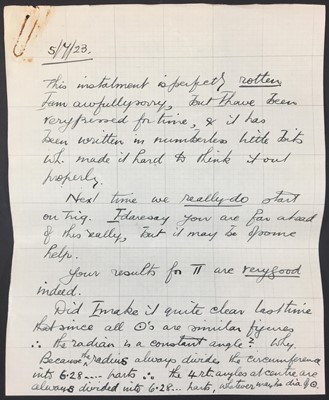 5/7/23.
This instalment is perfectly rotten
I am awfully sorry, but I have been
very pressed for time, & it has
been written in numberless little bits
wh. made it hard to think it out
properly.
Next time we really do start
on Trig. I daresay you are far ahead
of this really, but it may be of some
help.
Your results for π are very good
indeed.
Did I make it quite clear last time
that since all ⊙'s are similar figures
∴ the radian is a constant angle? Why.
Because the radius always divides the circumference
into 6.28.... parts ∴ the 4 rt. angles at centre are
always divided into 6.28... parts, whatever was the dia. of ⊙.